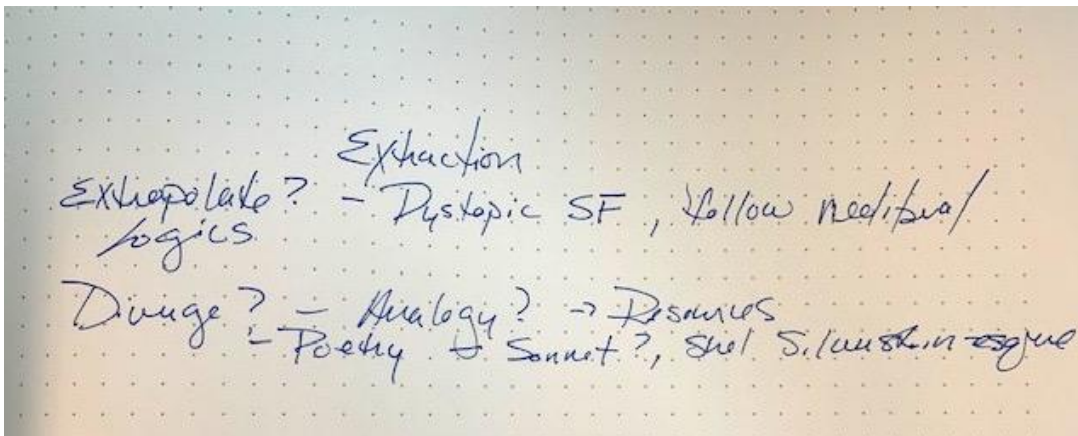 Extraction
Extrapolate? - Dystopic SF, follow
logics
Diverge? - Analogy? → Resources
- Poetry → Sonnet?, Shel Silverstein-esque